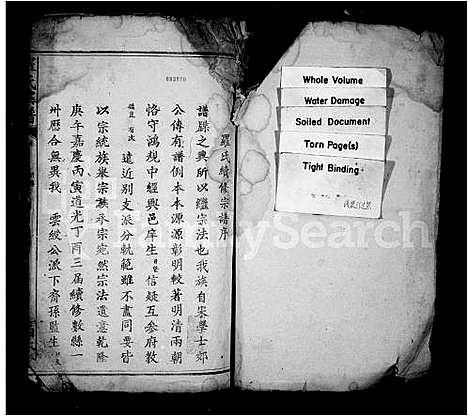 羅氏續修宗譜序
譜牒之興所以繼宗法也我族自宋學士郊
公傳有譜側本本源源彰明較著明清兩朝
恪守鴻規中經興邑庠生 信疑互參府教
遠近別支派分執範雖不盡同要皆
以宗統族宗宛然宗法遺意乾隆
庚午嘉慶丙寅道光丁酉三屆續修數縣一
卅曆合無異我 雲縱公派下裔孫監生
Whole Volume
Water Damage
Soiled Document
Torn Page(s)
Tight Binding
FamilySearch